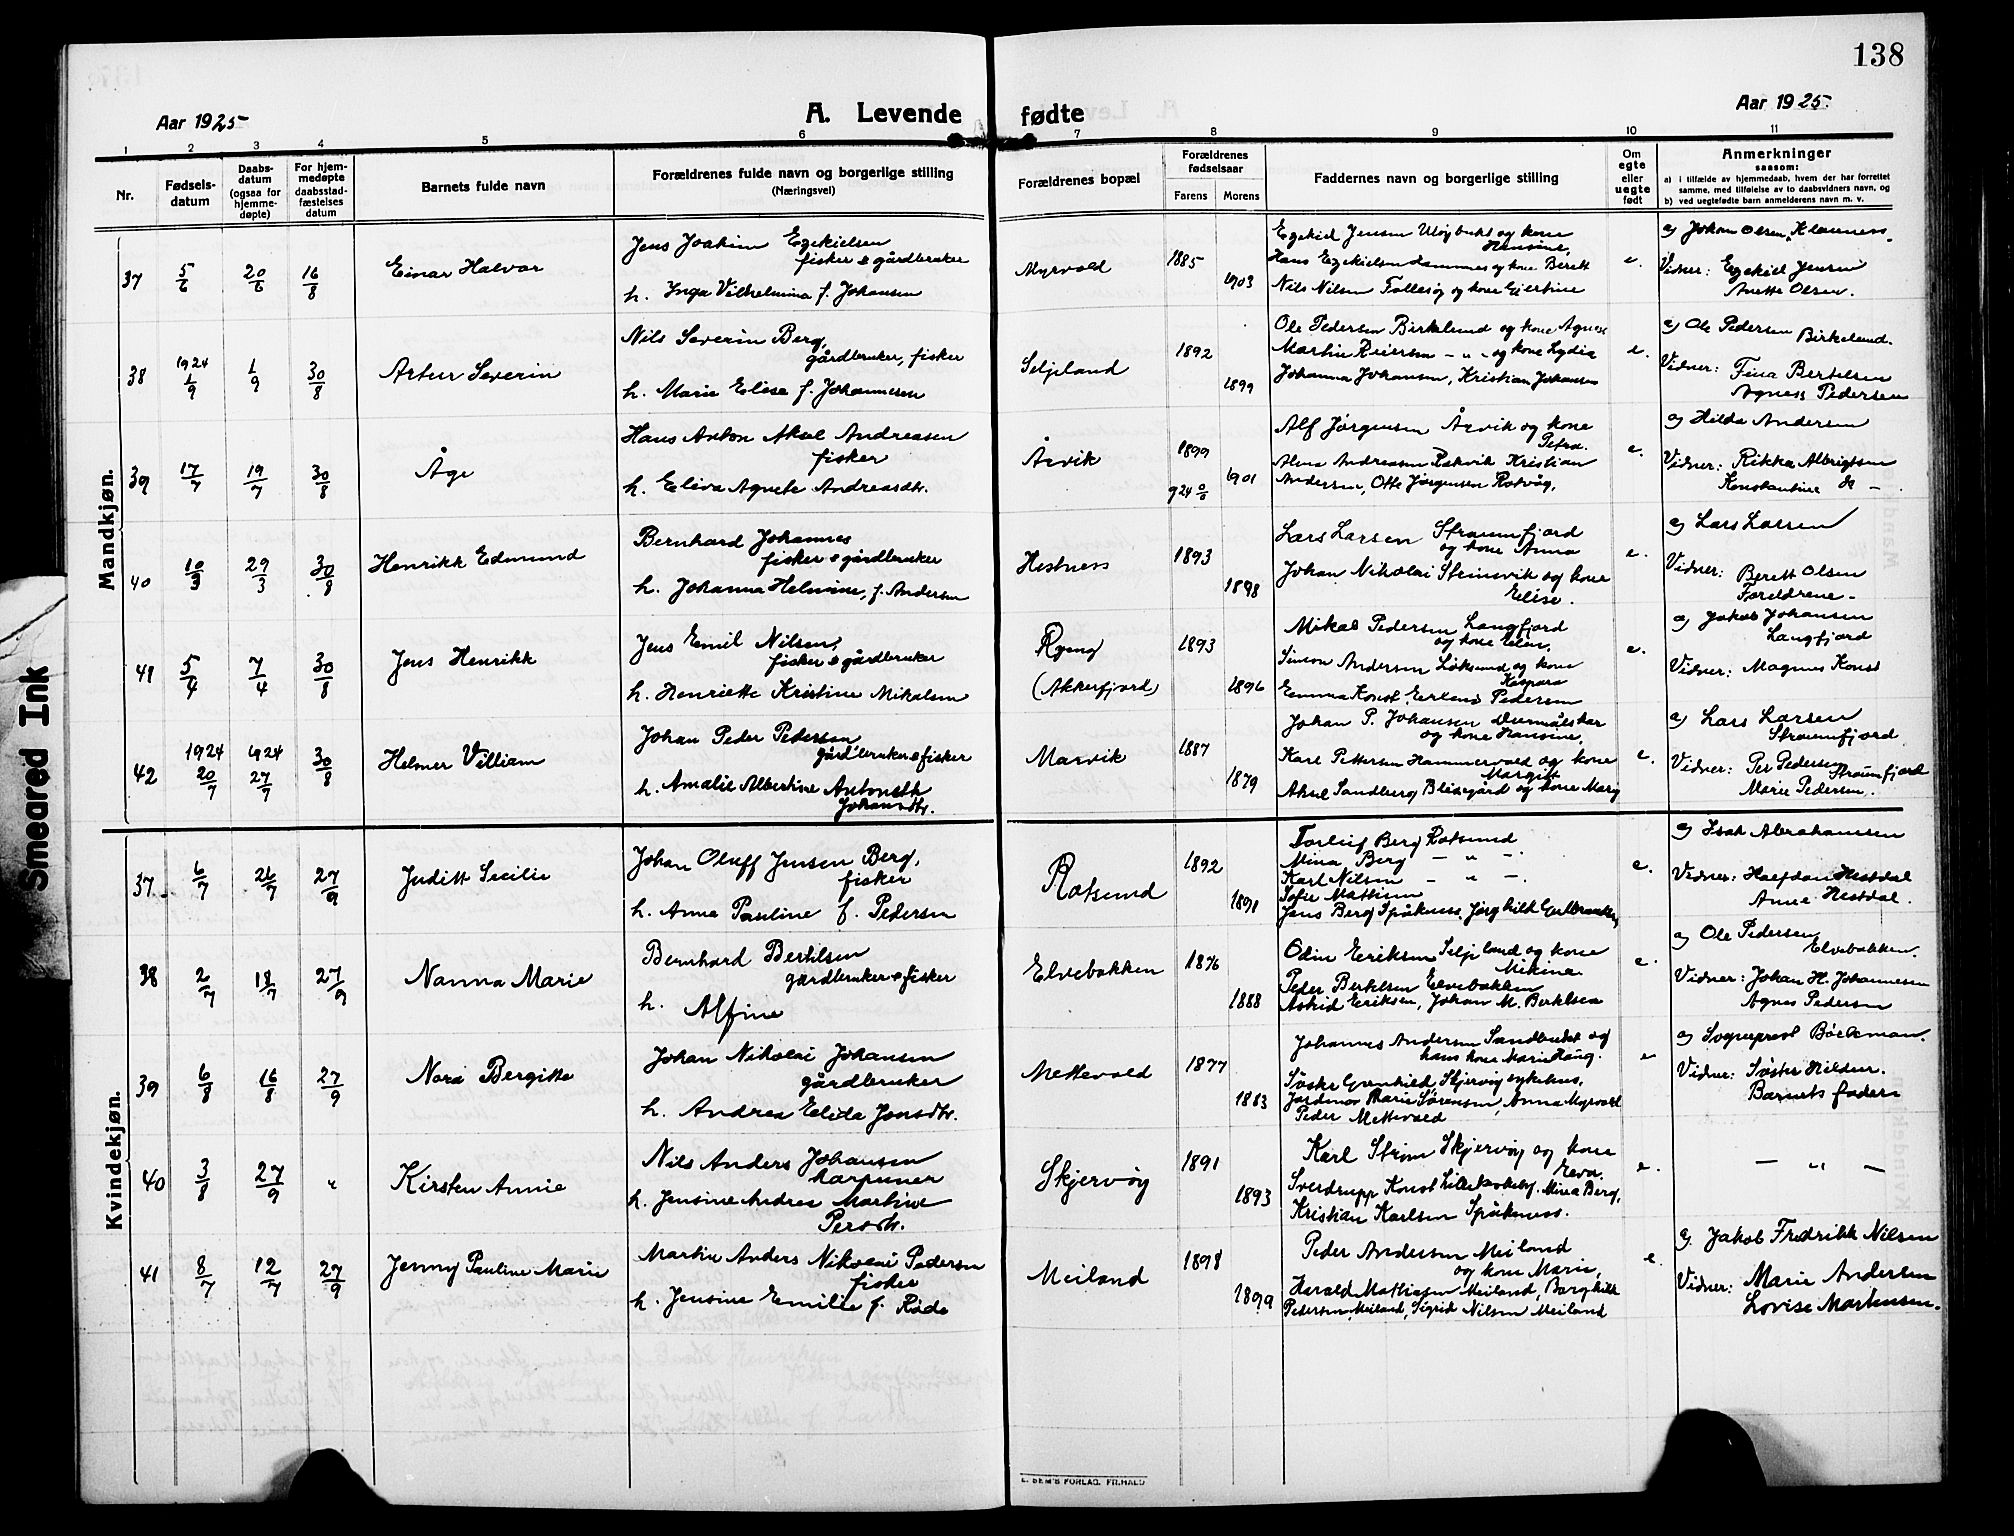 138
Aar 1925
A. Levende fødte
Aar 1925.
1 2 3 4 5 6 7 8 9 10 11
Nr.
Fødsels-
datum
Daabs-
datum
(ogsaa for
hjemme-
døpte)
For hjem-
medøpte
daabsstad-
fæstelses
datum
Barnets fulde navn
Forældrenes fulde navn og borgerlige stilling
(Næringsvei)
Forældrenes bopæl
Forældrenes
fødselsaar
Farens Morens
Faddernes navn og borgerlige stilling
Om
egte
eller
uegte
født
Anmerkninger
saasom:
a) i tilfælde av hjemmedaab, hvem der har forrettet
samme, med tilføielse av to daabsvidners navn, og
b) ved uegtefødte barn anmelderens navn m. v.
Mandkjøn.
37 5/6 20/6 16/8 Einar Halvor
Jens Joakim Ezekielsen
fisker & gårdbruker
h. Inga Vilhelmina f. Johansen
Myrvold 1885 1903
Ezekiel Jensen og kone
Hansine,
Hans Ezekielsen og kone Berett
Nils Nilsen og kone
e.
a) Johan Olsen, Klauness.
Vidner: Ezekiel Jensen
Anette Olsen.
38 1924 1/9 1/9 30/8 Artur Severin
Nils Severin Berg,
gårdbruker, fisker
h. Marie Elise f. Johannesen
Seljeland 1892 1899
Ole Pedersen Birkelund og kone Agnes
Martin Reiersen — " — og kone Lydia
Johanna Johansen, Kristian Johansen
e.
a) Ole Pedersen
Birkelund.
Vidner: Fina Bertelsen
Agnes Pedersen
39 17/7 19/7 30/8 Åge
Hans Anton Aksel Andreasen
fisker
h. Eliva Agnete Andreasdtr.
Årvik 1899 1901
Alf Jørgensen Årvik og kone
Petra.
Alma Andreasen Rakvik Kristian
Andersen, Otto Jørgensen Rotvåg.
e.
a) Hilda Andersen
Vidner: Rikka Albrigtsen
Konstantine
40 10/3 29/3 30/8 Henrikk Edmund
Bernhard Johannes
fisker & gårdbruker
h. Johanna Helmine, f. Andersen
Hestness 1893 1898
Lars Larsen Straumfjord
og kone Anna
Johan Nikolai Steinsvik og kone
Elise.
e.
a) Lars Larsen
Vidner: Berett Olsen
Foreldrene -
41 5/4 7/4 30/8 Jens Henrikk
Jens Emil Nilsen,
fisker & gårdbruker
h. Henriette Kristine Mikalsen
(Akkarfjord) 1893 1896
Mikal Pedersen Langfjord
og kone Elen,
Simon Andersen Løksund og kone
Kaspara
Emma Konst, Erlend Pedersen
e.
a) Jakob Johansen
Langfjord
Vidner: Magnus Konst
42 1924 20/7 1924 27/7 30/8 Helmer Villiam
Johan Peder Pedersen
gårdbruker & fisker
h. Amalie Albertine Antonette
Johansdtr.
Marvik 1887 1879
Johan P. Johansen
og kone Hansine,
Karl Pettersen Hammervold og kone
Margitt
Aksel Sandberg Blisegård og kone Mary
e.
a) Lars Larsen
Straumfjord
Vidner: Per Pedersen
Straumfjord
Marie Pedersen.
Kvindekjøn.
37 6/7 26/7 27/9 Juditt Secilie
Johan Oluff Jensen Berg,
fisker
h. Anna Pauline f. Pedersen
Rotsund 1892 1891
Torleif Berg Rotsund
Mina Berg — " —
Karl Nilsen — " —
Sofie Mattisen
Jens Berg Spåkness,
e.
a) Isak Abrahamsen
Vidner: Halfdan Hestdal
Anna Hestdal.
38 2/7 18/7 27/9 Nanna Marie
Bernhard Bertilsen
gårdbruker & fisker
h. Alfine
Elvebakken 1876 1888
Odin Eriksen Seljeland og kone
Mikine
Peder Bertilsen Elvebakken
Astrid Eriksen, Johan M. Bertilsen
e.
a) Ole Pedersen
Elvebakken.
Vidner: Johan H. Johannesen
Agnes Pedersen
39 6/8 16/8 27/9 Nora Bergitte
Johan Nikolai Johansen
gårdbruker
h. Andrea Elida Jensdtr.
Mettevold 1877 1883
Johannes Andersen Sandbukt og
hans kone Marie Haug.
Søster Gunhild, Skjervøy sykehus,
Jordmor Marie Sørensen, Anna Myrvold
Peder Mettevold
e
a) Sogneprest Bøckman.
Vidner: Søster Hildur.
Barnets fader
40 3/8 27/9 " Kirsten Annie
Nils Anders Johansen
harpuner
h. Jensine Andrea Martine
Persdtr.
Skjervøy 1891 1893
Karl Strøm Skjervøy og kone
Eeva.
Sverdrupp Konst, Mina Berg,
Kristian Karlsen Spåkness.
e.
— " —
41 8/7 12/7 27/9 Jenny Pauline Marie
Martin Anders Nikolai Pedersen
fisker
h. Jensine Emilie f. Røde
Meiland 1898 1899
Peder Andersen Meiland
og kone Marie,
Harald Mathisen Meiland, Borghild
Pedersen, Meiland, Sigrid Nilsen Meiland
e.
a) Jakob Fredrikk Nilsen
Vidner: Marie Andersen
Lovise Martinsen.
E. SEM'S FORLAG. FR.HALD
Smeared Ink